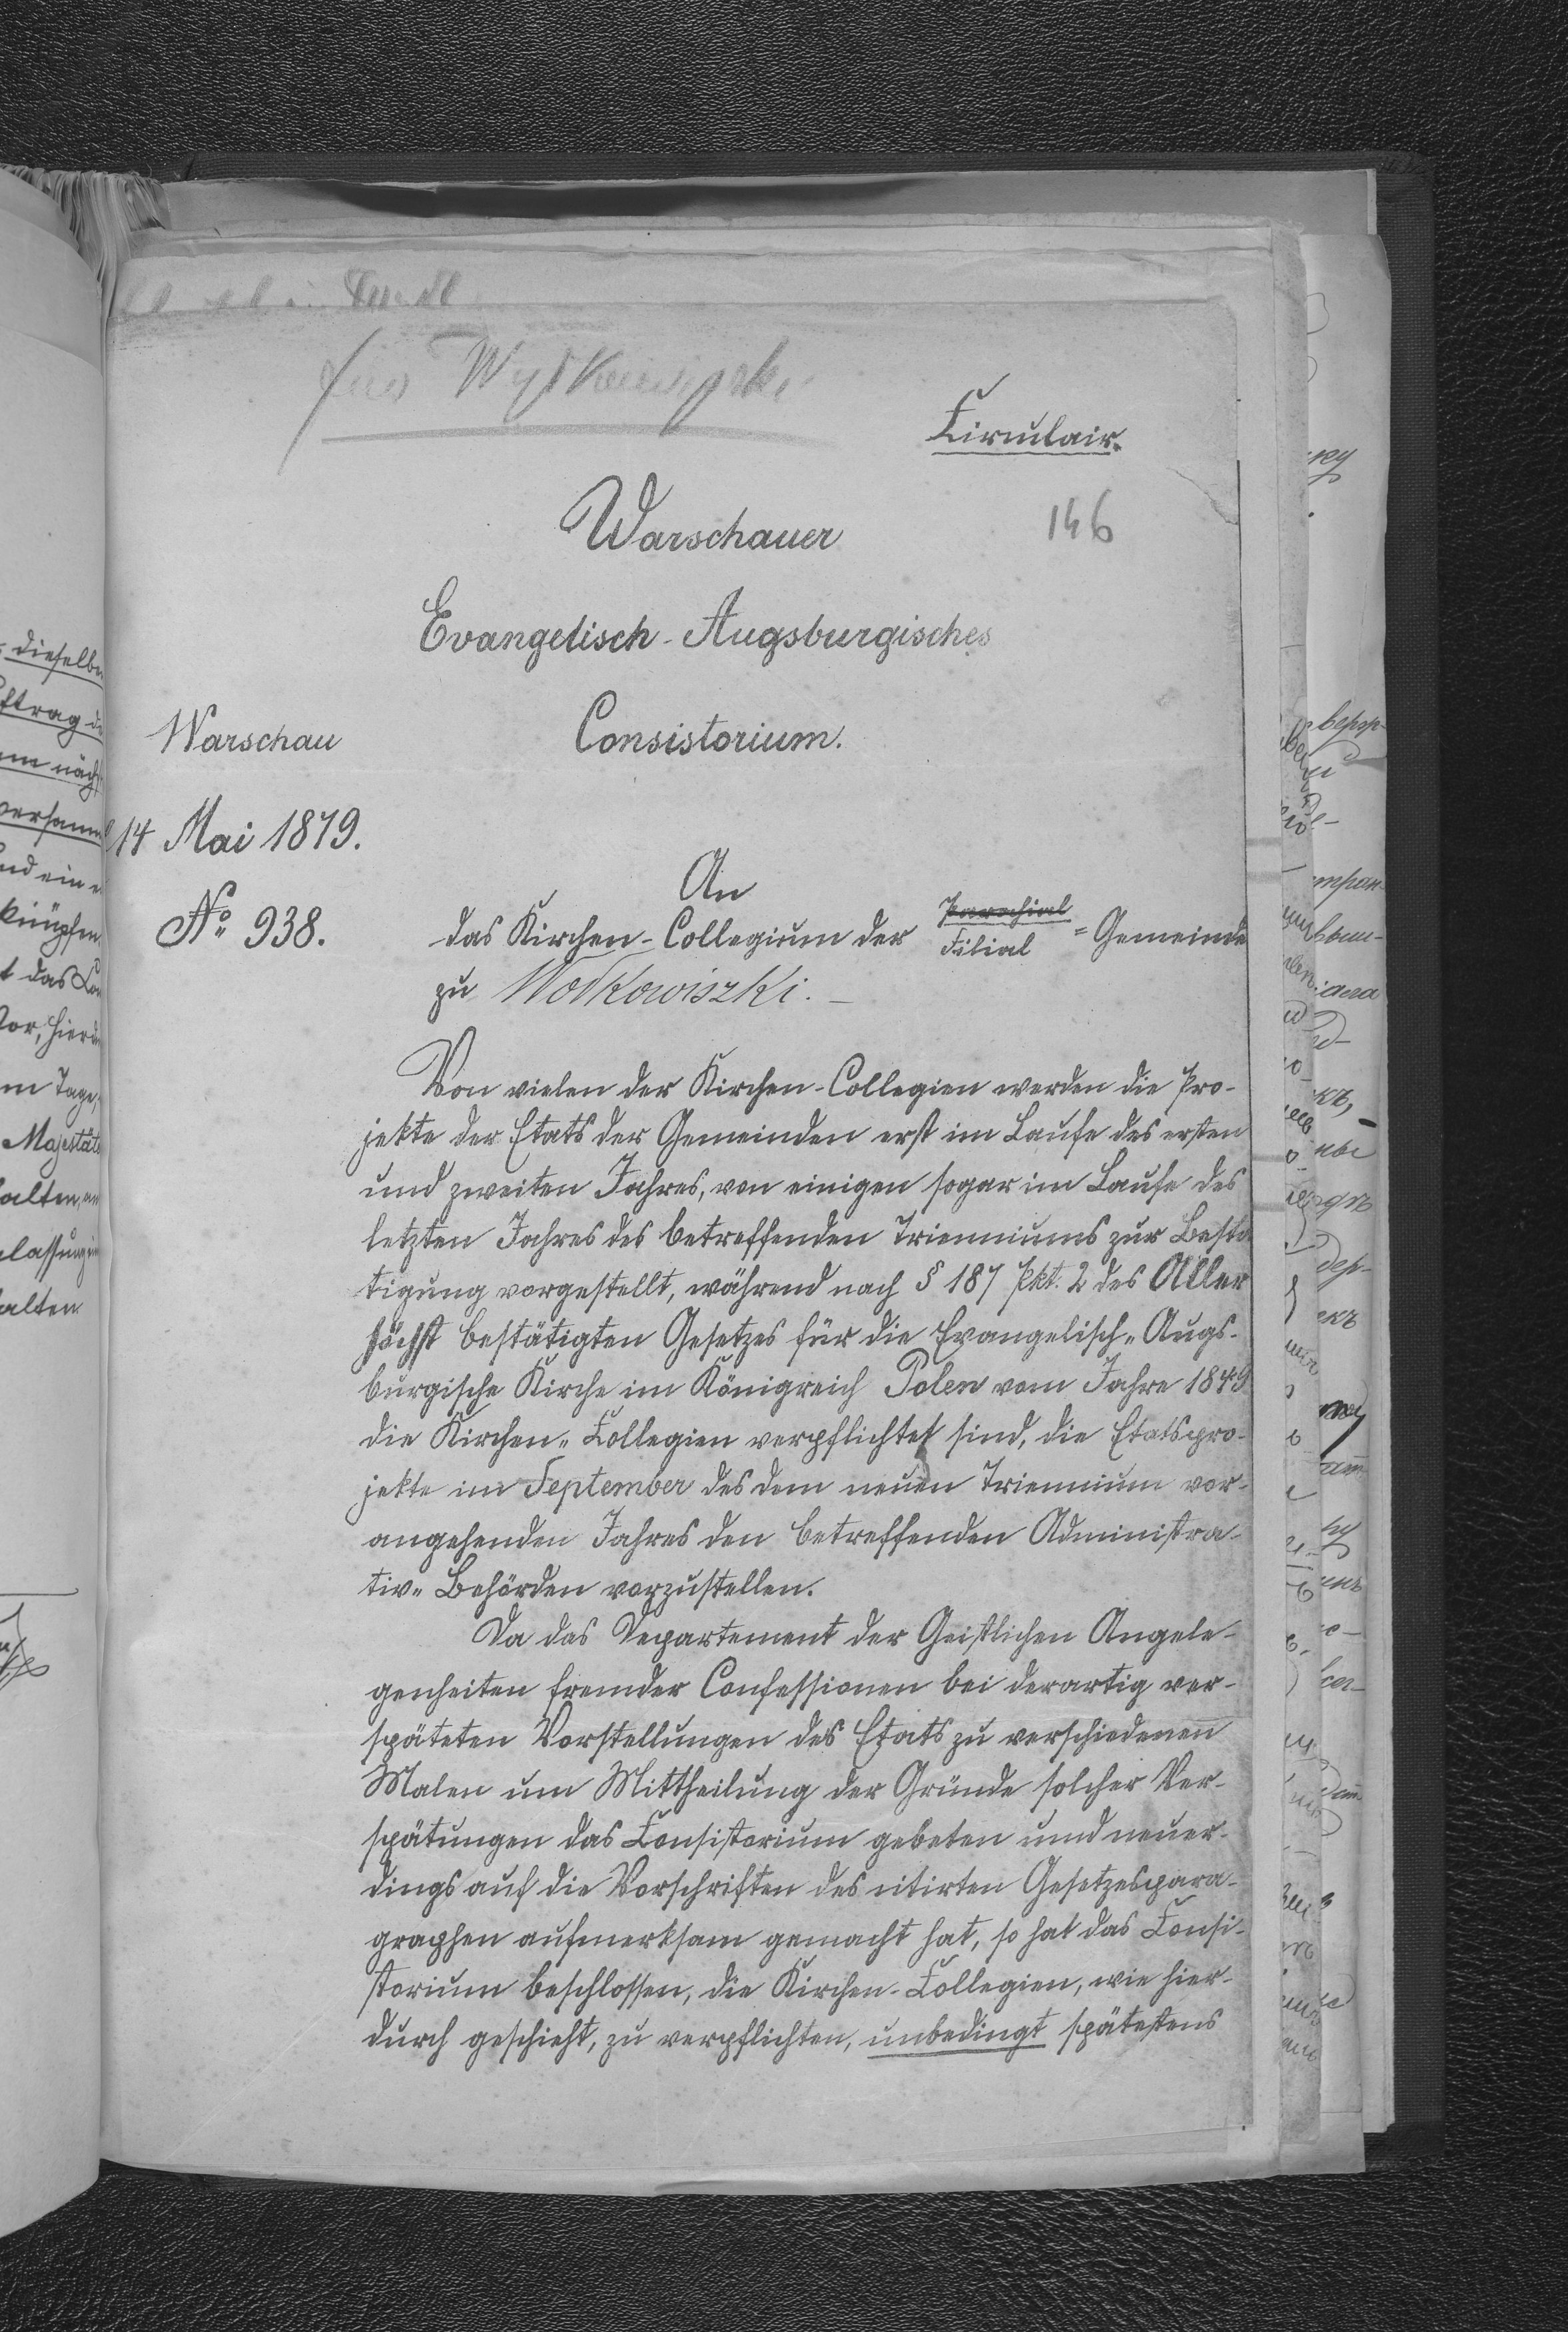 für
Circulair.
146
Warschauer
Evangelisch-Augsburgisches
Warschau
Consistorium.
14 Mai 1879.
An
No 938.
das Kirchen-Collegium der Parochial
Filial = Gemeinde
zu Wolkowiszki. -
Von vielen der Kirchen-Collegien werden die Pro-
jekte der Etats der Gemeinden erst im Laufe des ersten
und zweiten Jahres, von einigen sogar im Laufe des
letzten Jahres des betreffenden Trienniums zur Bestä
tigung vorgestellt, während nach § 187 Pkt. 2 des Aller
höchst bestätigten Gesetzes für die Evangelisch-Augs-
burgische Kirche im Königreich Polen vom Jahre 1849
die Kirchen-Collegien verpflichtet sind, die Etatspro-
jekte im September des dem neuen Triennium vor-
angehenden Jahres den betreffenden Administra-
tiv-Behörden vorzustellen.
Da das Departement der Geistlichen Angele-
genheiten fremder Confessionen bei derartig ver-
späteten Vorstellungen des Etats zu verschiedenen
Malen um Mittheilung der Gründe solcher Ver-
spätungen das Consistorium gebeten und neuer-
dings auf die Vorschriften des citirten Gesetzespara-
graphen aufmerksam gemacht hat, so hat das Consi-
storium beschlossen, die Kirchen-Collegien, wie hier-
durch geschieht, zu verpflichten, unbedingt spätestens